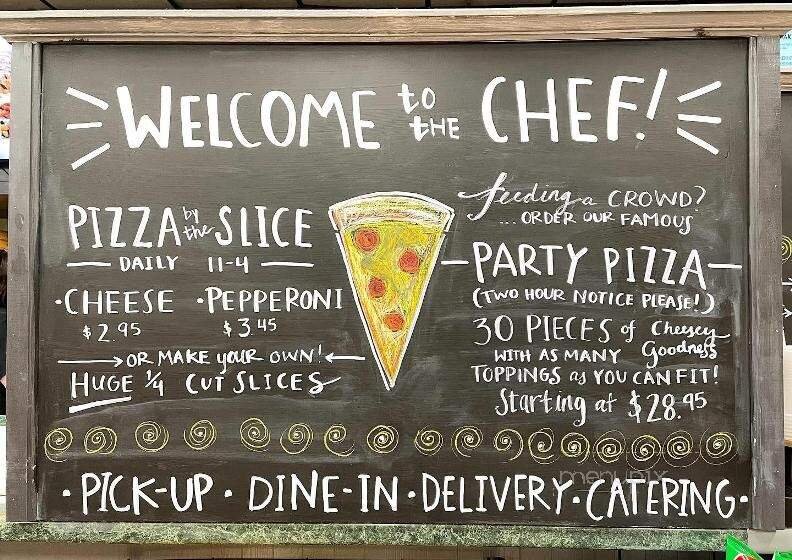 WELCOME to the CHEF!
PIZZA by the SLICE
DAILY 11-4
• CHEESE • PEPPERONI
$2.95 $3.45
OR MAKE your OWN!
HUGE 1/4 CUT SLICES
feeding a CROWD?
... ORDER OUR FAMOUS
PARTY PIZZA
(TWO HOUR NOTICE PLEASE!)
30 PIECES of Cheesey
WITH AS MANY Goodness
TOPPINGS as YOU CAN FIT!
Starting at $28.95
• PICK-UP • DINE-IN • DELIVERY • CATERING •
menupix